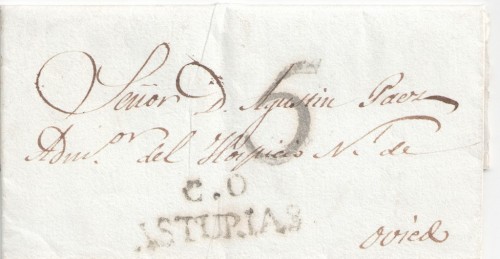 Señor D. Agustin Paez
5
Adm.or del Hospicio N.l de
C.O
ASTURIAS
Oviedo